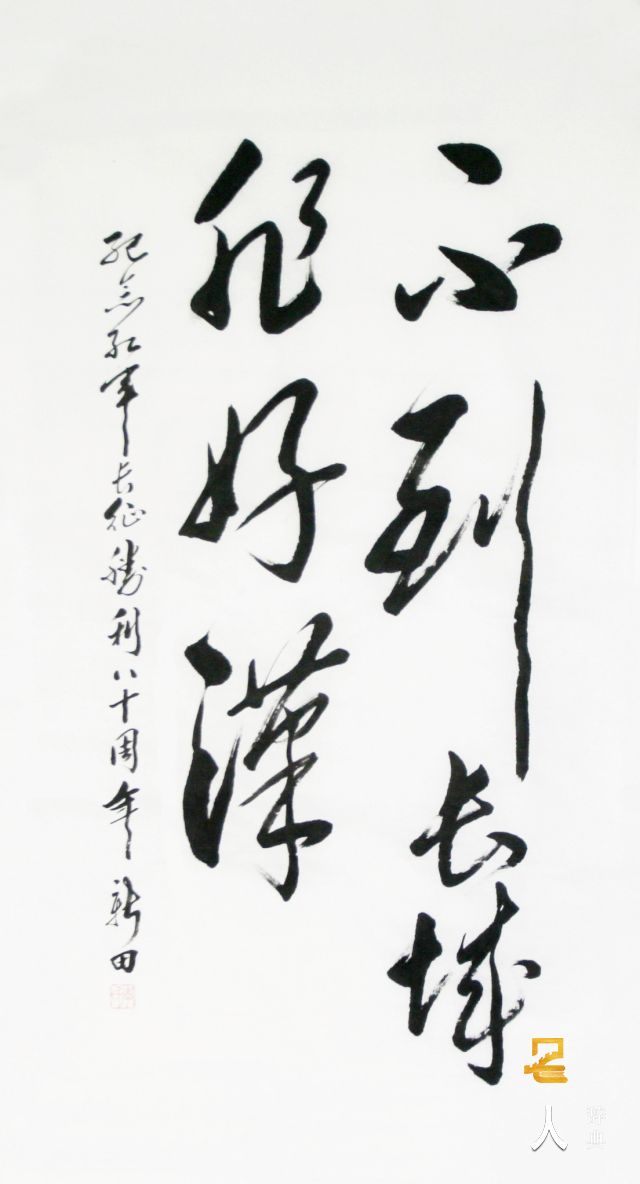 不到长城
非好漢
紀念红军长征勝利八十周年 新田
人
辞典